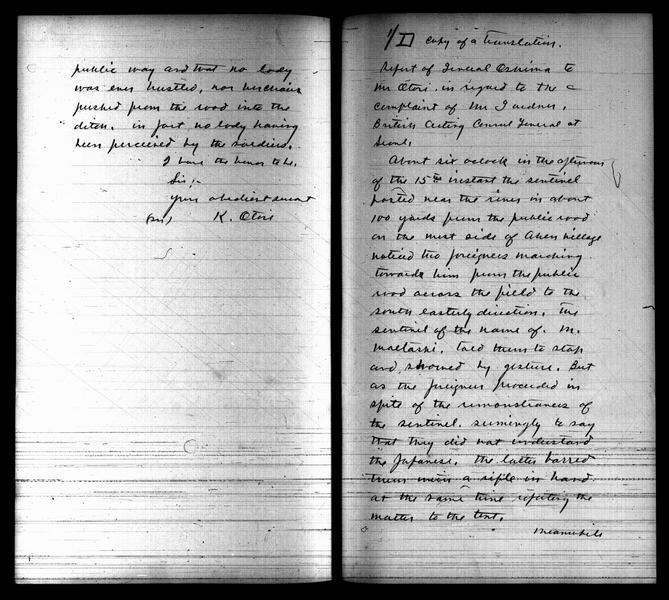 public way and that no lady
was ever hustled, nor her chair
pushed from the road into the
ditch. in fact no lady having
been perceived by the soldiers.
I have the honor to be,
Sir:-
your obedient servant
K. Otori
1/D copy of a translation.
Report of General Oshima to
Mr Otori. in regard to the
complaint of Mr Gardner,
British Acting Consul General at
Seoul.
About six oclock in the afternoon
of the 15th instant the sentinel
posted near the river in about
100 yards from the public road
on the west side of Ahen village
noticed two foreigners marching
towards him from the public
road across the field to the
south easterly direction. The
sentinel of the name of M.
told them to stop
and showed by gesture. But
as the foreigners proceeded in
spite of the remonstrances of
the sentinel. seemingly to say
that they did not understand
the Japanese. the latter barred
them with a rifle in hand
at the same time reporting the
matter to the tent.
meanwhile